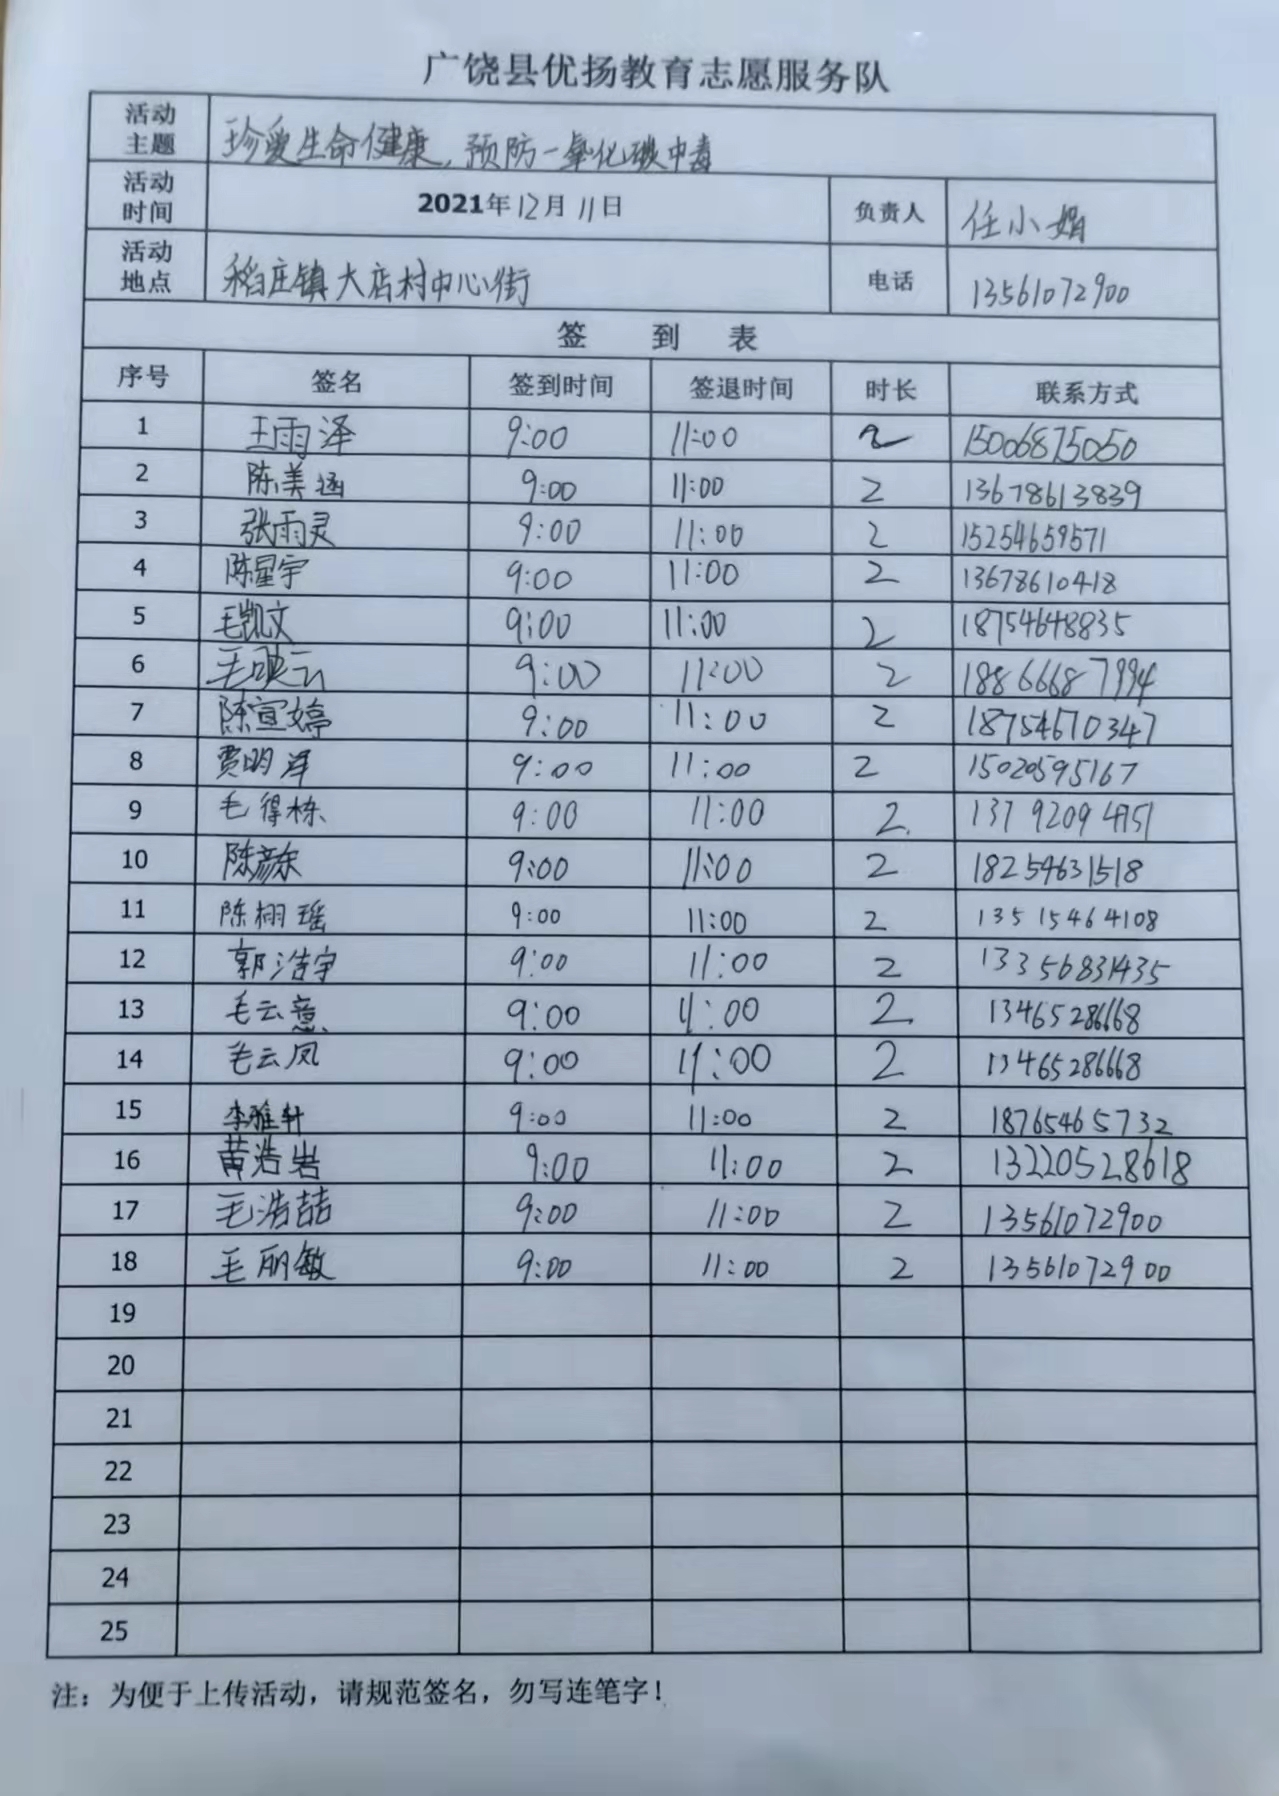 广饶县优扬教育志愿服务队
活动主题 珍爱生命健康，预防一氧化碳中毒
活动时间 2021年12月11日 负责人 任小娟
活动地点 稻庄镇大店村中心街 电话 13561072900
签到表
序号 签名 签到时间 签退时间 时长 联系方式
1 王雨泽 9:00 11:00 2 15006875050
2 陈美涵 9:00 11:00 2 13678613839
3 张雨灵 9:00 11:00 2 15254659571
4 陈星宇 9:00 11:00 2 13678610418
5 毛凯文 9:00 11:00 2 18754648835
6 毛 9:00 11:00 2 18866687994
7 陈宣婷 9:00 11:00 2 18754670347
8 贾明泽 9:00 11:00 2 15020595167
9 毛得栋 9:00 11:00 2
10 陈彦东 9:00 11:00 2 18254631518
11 陈栩瑶 9:00 11:00 2 13515464108
12 郭浩宇 9:00 11:00 2 13356831435
13 毛云意 9:00 11:00 2 13465286668
14 毛云凤 9:00 11:00 2 13465286668
15 李雅轩 9:00 11:00 2 18765465732
16 黄浩岩 9:00 11:00 2 13220528618
17 毛浩喆 9:00 11:00 2 13561072900
18 毛丽敏 9:00 11:00 2 13561072900
19
20
21
22
23
24
25
注：为便于上传活动，请规范签名，勿写连笔字！